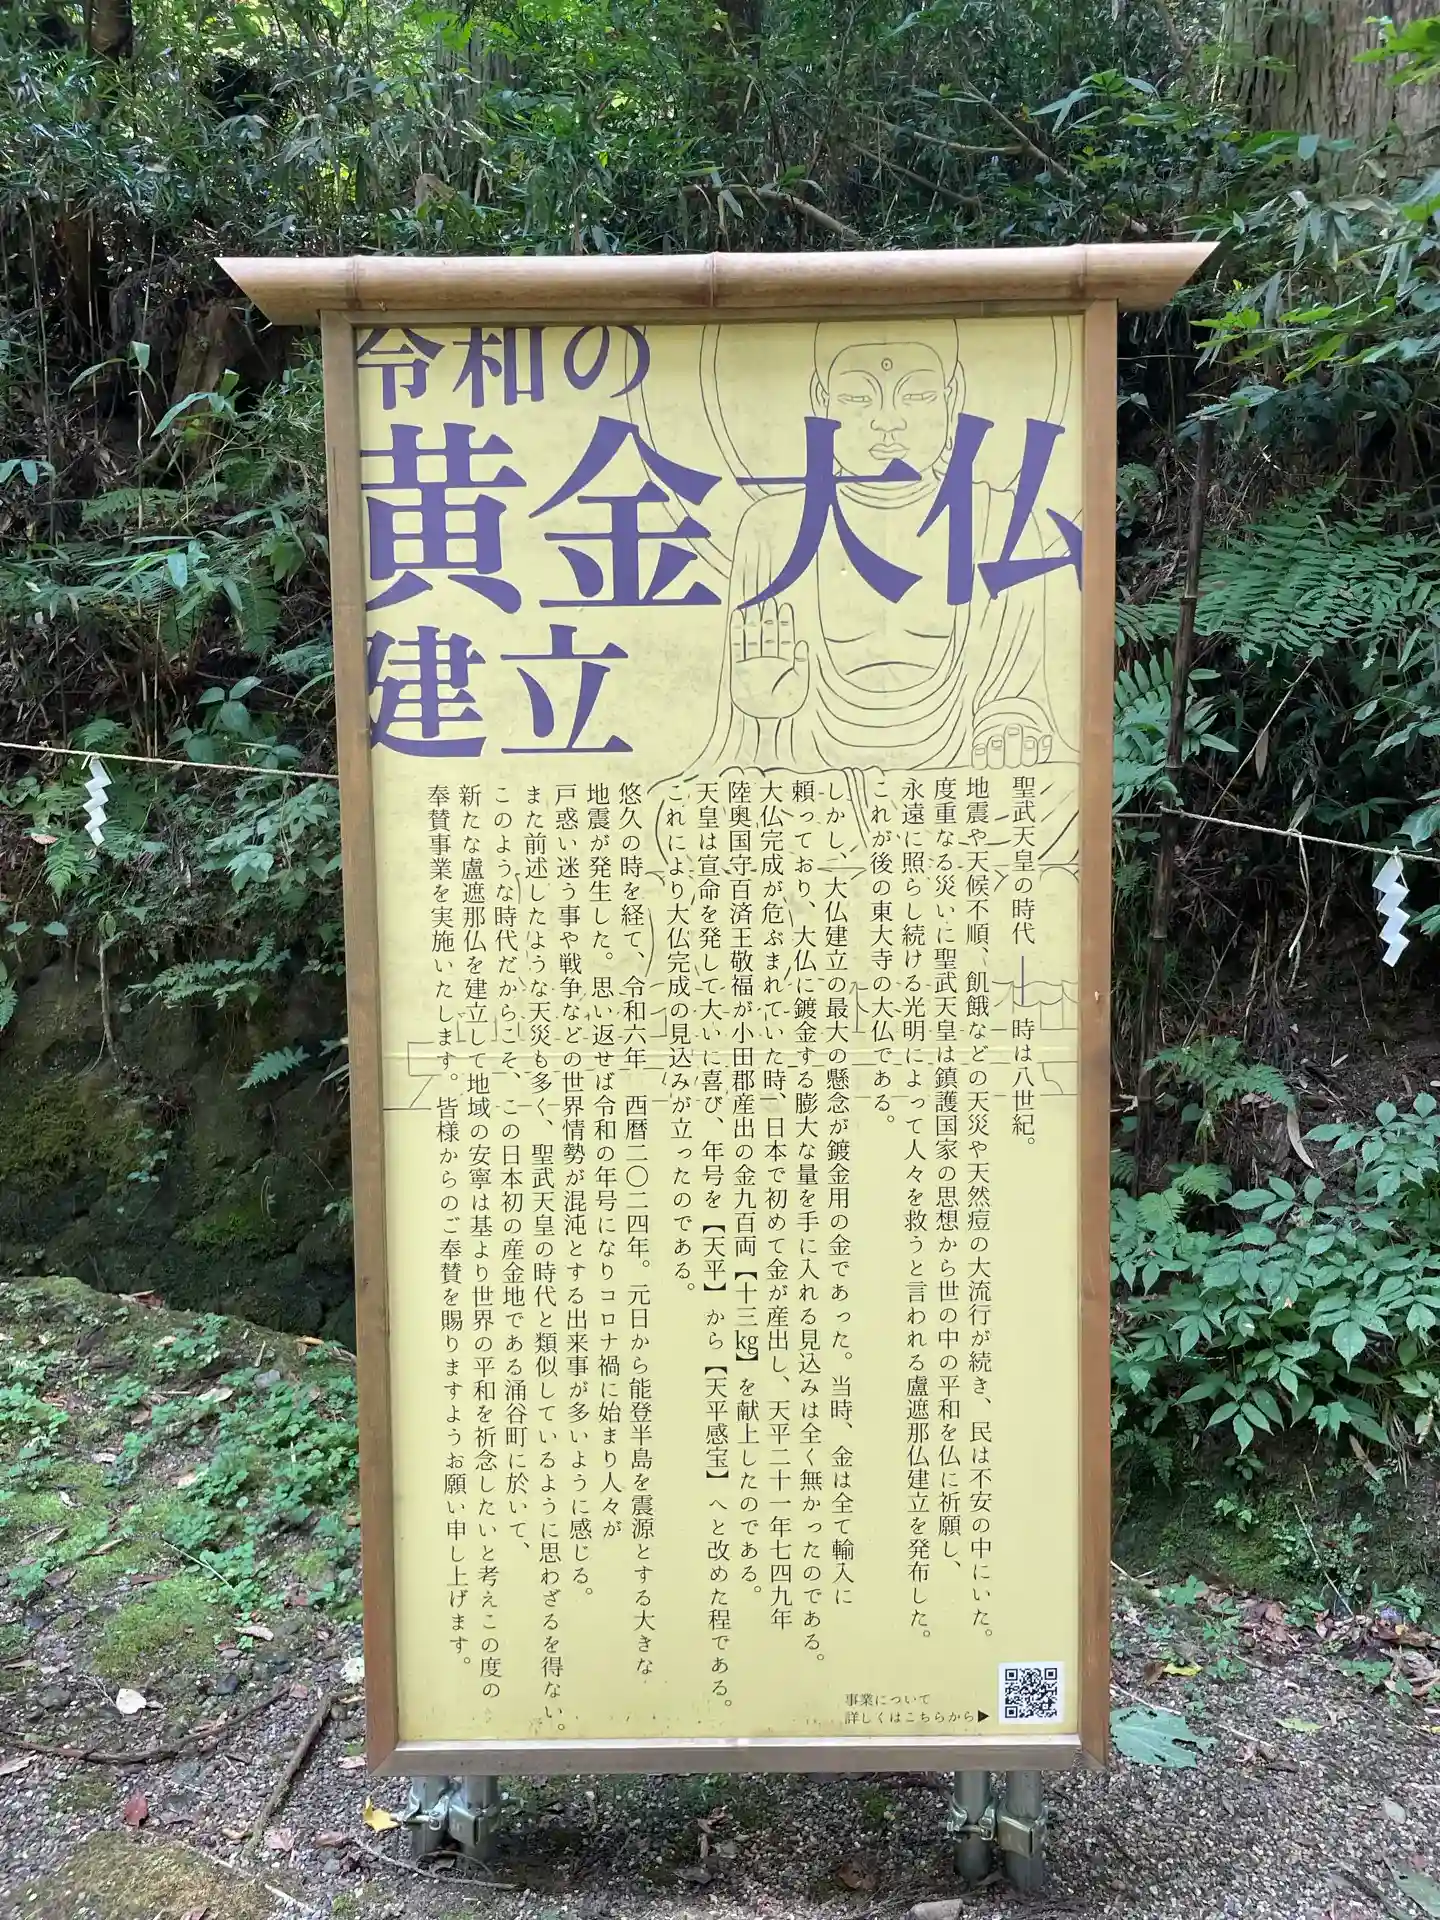 令和の
黄金大仏
建立
聖武天皇の時代 ── 時は八世紀。
地震や天候不順、飢餓などの天災や天然痘の大流行が続き、民は不安の中にいた。
度重なる災いに聖武天皇は鎮護国家の思想から世の中の平和を仏に祈願し、
永遠に照らし続ける光明によって人々を救うと言われる盧遮那仏建立を発布した。
これが後の東大寺の大仏である。
しかし、大仏建立の最大の懸念が鍍金用の金であった。当時、金は全て輸入に
頼っており、大仏に鍍金する膨大な量を手に入れる見込みは全く無かったのである。
大仏完成が危ぶまれていた時、日本で初めて金が産出し、天平二十一年七四九年
陸奥国守百済王敬福が小田郡産出の金九百両【十三㎏】を献上したのである。
天皇は宣命を発して大いに喜び、年号を【天平】から【天平感宝】へと改めた程である。
これにより大仏完成の見込みが立ったのである。
悠久の時を経て、令和六年 西暦二〇二四年。元日から能登半島を震源とする大きな
地震が発生した。思い返せば令和の年号になりコロナ禍に始まり人々が
戸惑い迷う事や戦争などの世界情勢が混沌とする出来事が多いように感じる。
また前述したような天災も多く、聖武天皇の時代と類似しているように思わざるを得ない。
このような時代だからこそ、この日本初の産金地である涌谷町に於いて、
新たな盧遮那仏を建立して地域の安寧は基より世界の平和を祈念したいと考えこの度の
奉賛事業を実施いたします。皆様からのご奉賛を賜りますようお願い申し上げます。
事業について
詳しくはこちらから▶